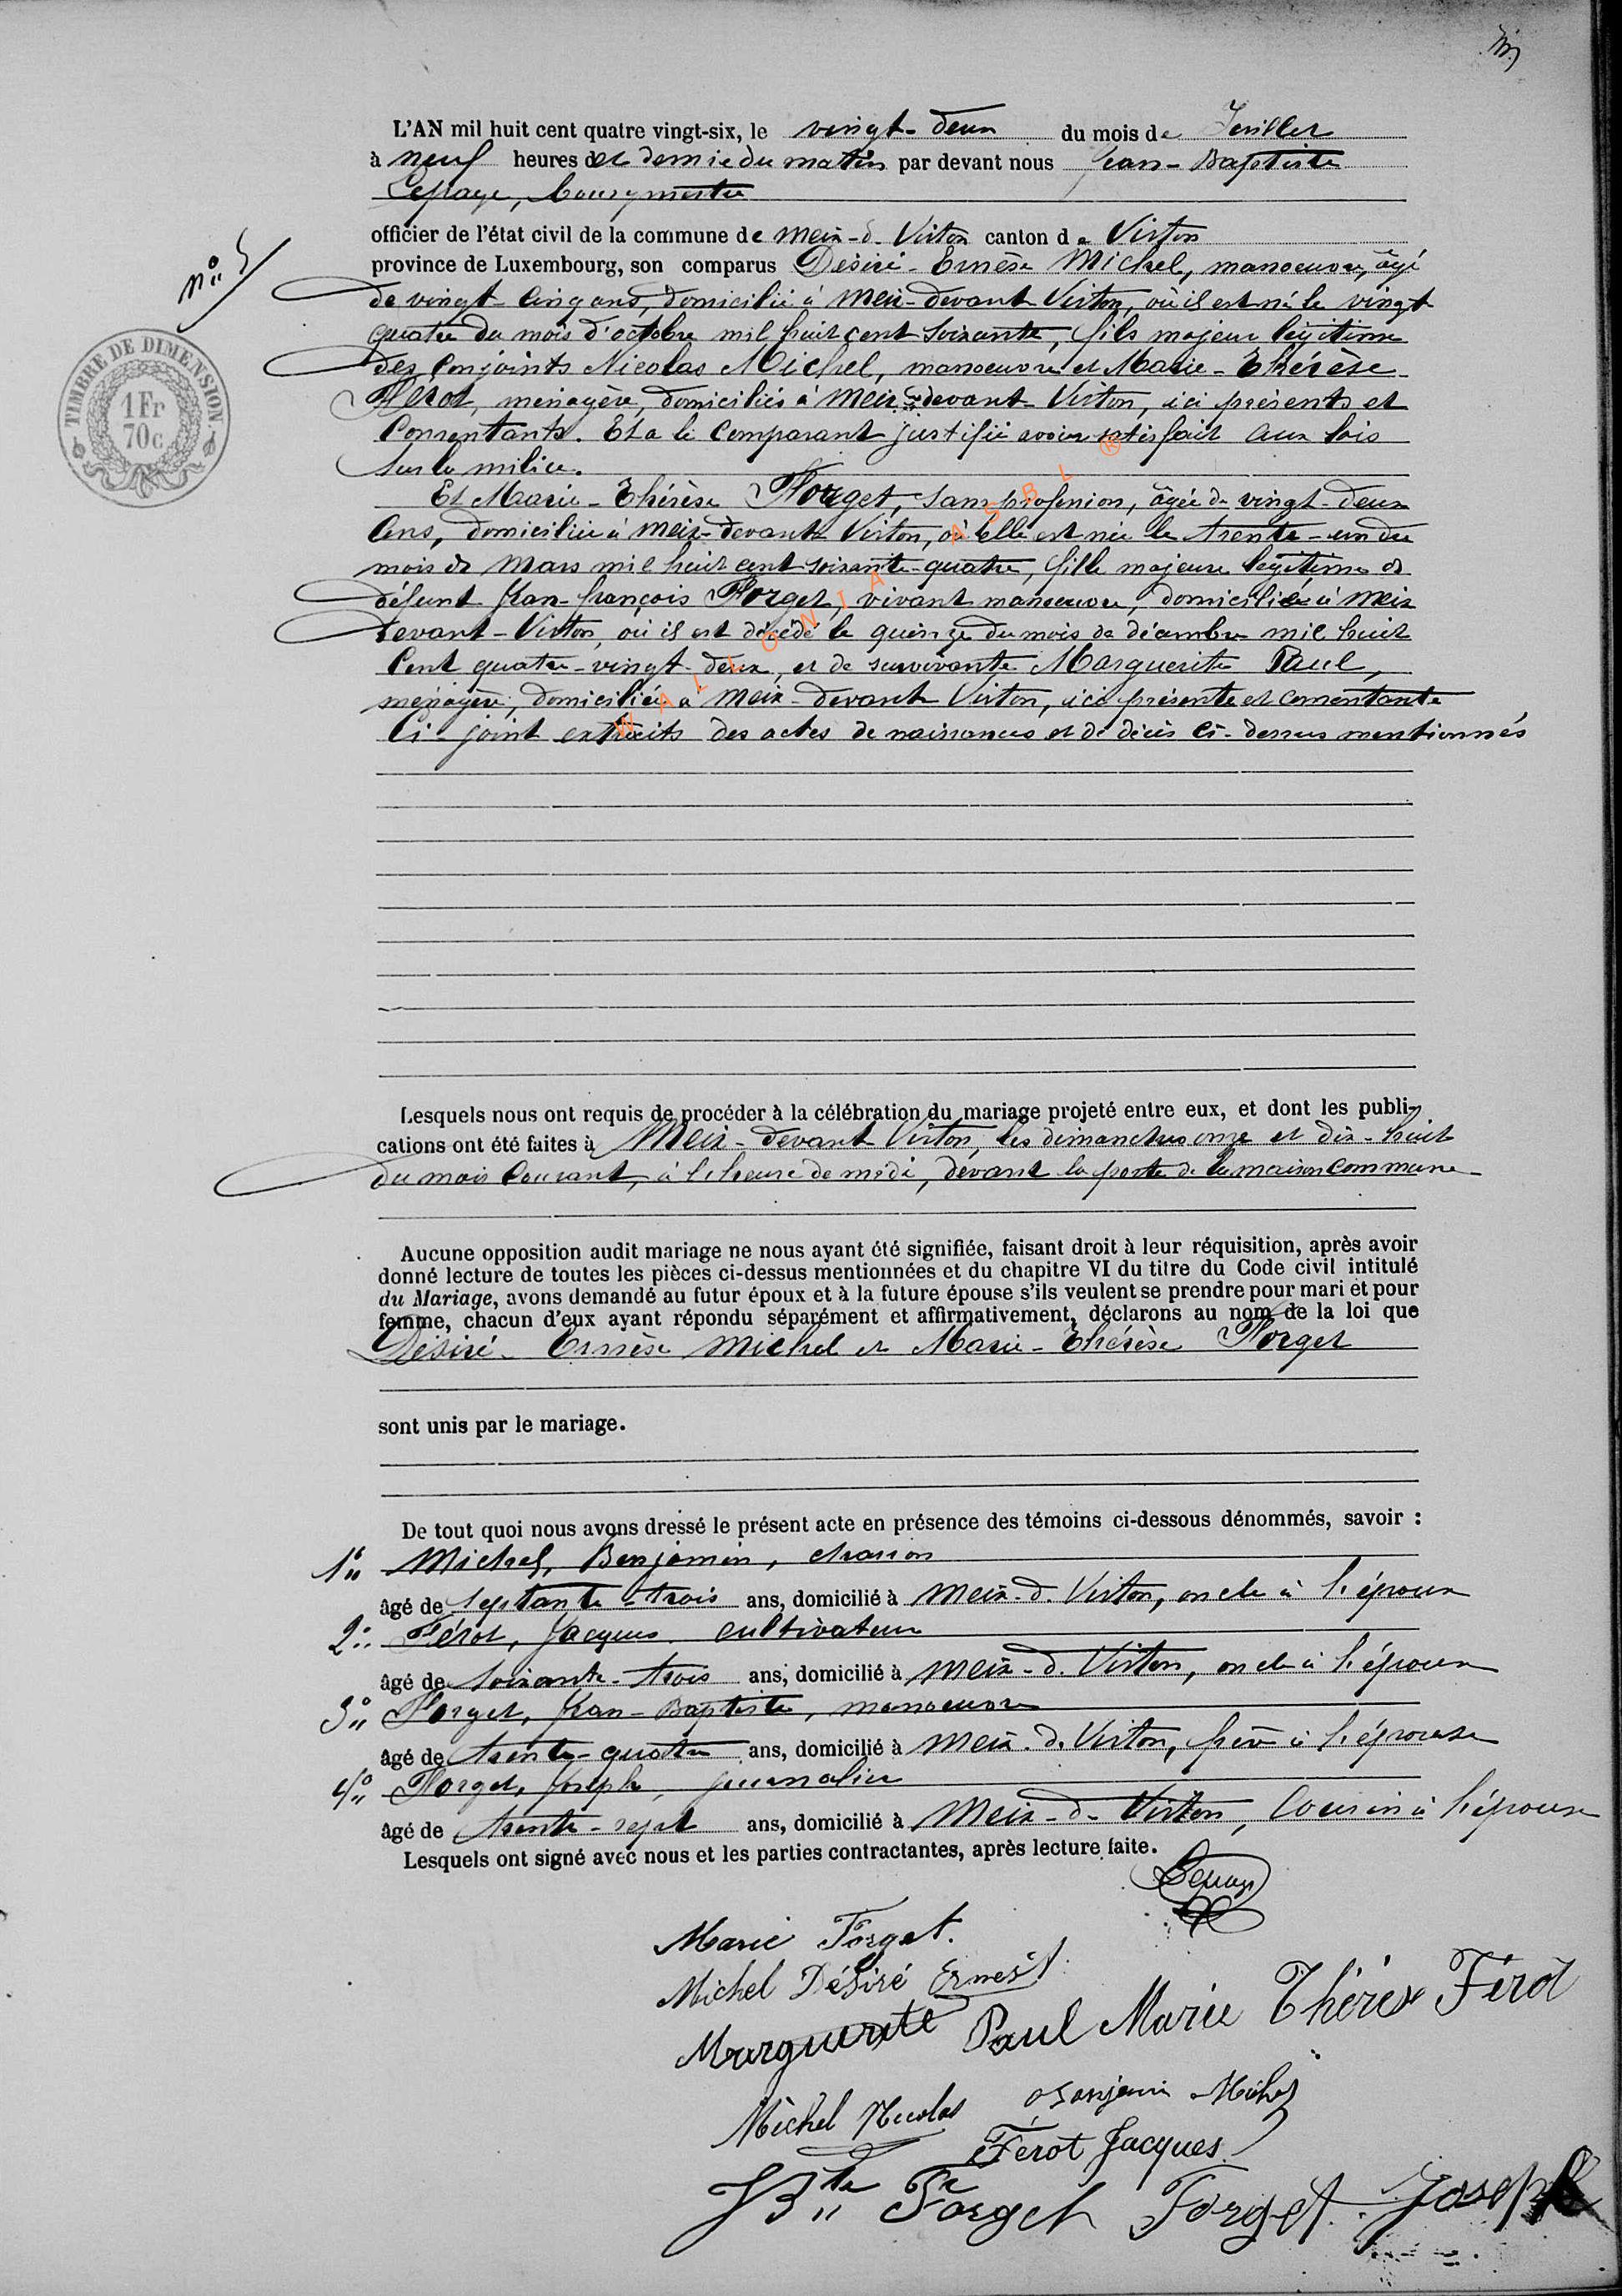 L'AN mil huit cent quatre vingt-six, le vingt-deux du mois de Juillet
à neuf heures et demie du matin par devant nous Jean-Baptiste
Lepage, bourgmestre
officier de l'état civil de la commune de Meix-d-Virton canton de Virton
n° 5
province de Luxembourg, son comparus Désiré-Ernèse Michel, manoeuvre, âgé
de vingt-cinq ans, domicilié à Meix-devant Virton, où il est né le vingt
quatre du mois d'octobre mil huit cent soixante, fils majeur légitime
des conjoints Nicolas Michel, manoeuvre et Marie-Thérèse
Férot, ménagère, domiciliés à Meix-devant-Virton, ici présents et
Consentants. Et a le Comparant justifié avoir satisfait aux lois
Sur la milice.
TIMBRE DE DIMENSION
1 Fr
70 c
Et Marie-Thérèse Forget, sans profession, âgée de vingt-deux
Ans, domiciliée à Meix-devant Virton, où elle est née le trente-un du
mois de Mars mil huit cent soixante-quatre, fille majeure légitime de
défunt Jean-François Forget, vivant manoeuvre, domicilié à Meix
devant-Virton, où il est décédé le quinze du mois de décembre mil huit
Cent quatre-vingt-deux, et de survivante Marguerite Paul,
ménagère, domiciliée à Meix-devant Virton, ici présente et consentante
Ci-joint extraits des actes de naissances et de décès ci-dessus mentionnés
WALLONIA ASBL ®
Lesquels nous ont requis de procéder à la célébration du mariage projeté entre eux, et dont les publi-
cations ont été faites à Meix-devant Virton, les dimanches onze et dix-huit
du mois Courant, à l'heure de midi, devant la porte de la maison Commune
Aucune opposition audit mariage ne nous ayant été signifiée, faisant droit à leur réquisition, après avoir
donné lecture de toutes les pièces ci-dessus mentionnées et du chapitre VI du titre du Code civil intitulé
du Mariage, avons demandé au futur époux et à la future épouse s'ils veulent se prendre pour mari et pour
femme, chacun d'eux ayant répondu séparément et affirmativement, déclarons au nom de la loi que
Désiré-Ernèse Michel et Marie-Thérèse Forget
sont unis par le mariage.
De tout quoi nous avons dressé le présent acte en présence des témoins ci-dessous dénommés, savoir :
1° Michel, Benjamin, charron
âgé de septante-trois ans, domicilié à Meix-d. Virton, oncle à l'époux
2° Férot, Jacques cultivateur
âgé de soixante-trois ans, domicilié à Meix-d. Virton, oncle à l'époux
3° Forget, Jean-Baptiste, manoeuvre
âgé de trente-quatre ans, domicilié à Meix-d. Virton, frère à l'épouse
4° Forget, Joseph, journalier
âgé de trente-sept ans, domicilié à Meix-d-Virton, Cousin à l'épouse
Lesquels ont signé avec nous et les parties contractantes, après lecture faite.
Lepage
Marie Forget.
Michel Désiré Ernest
Marguerite Paul Marie Thérèse Férot
Michel Nicolas Benjamin Michel
Férot Jacques
JBte Forget Forget Joseph